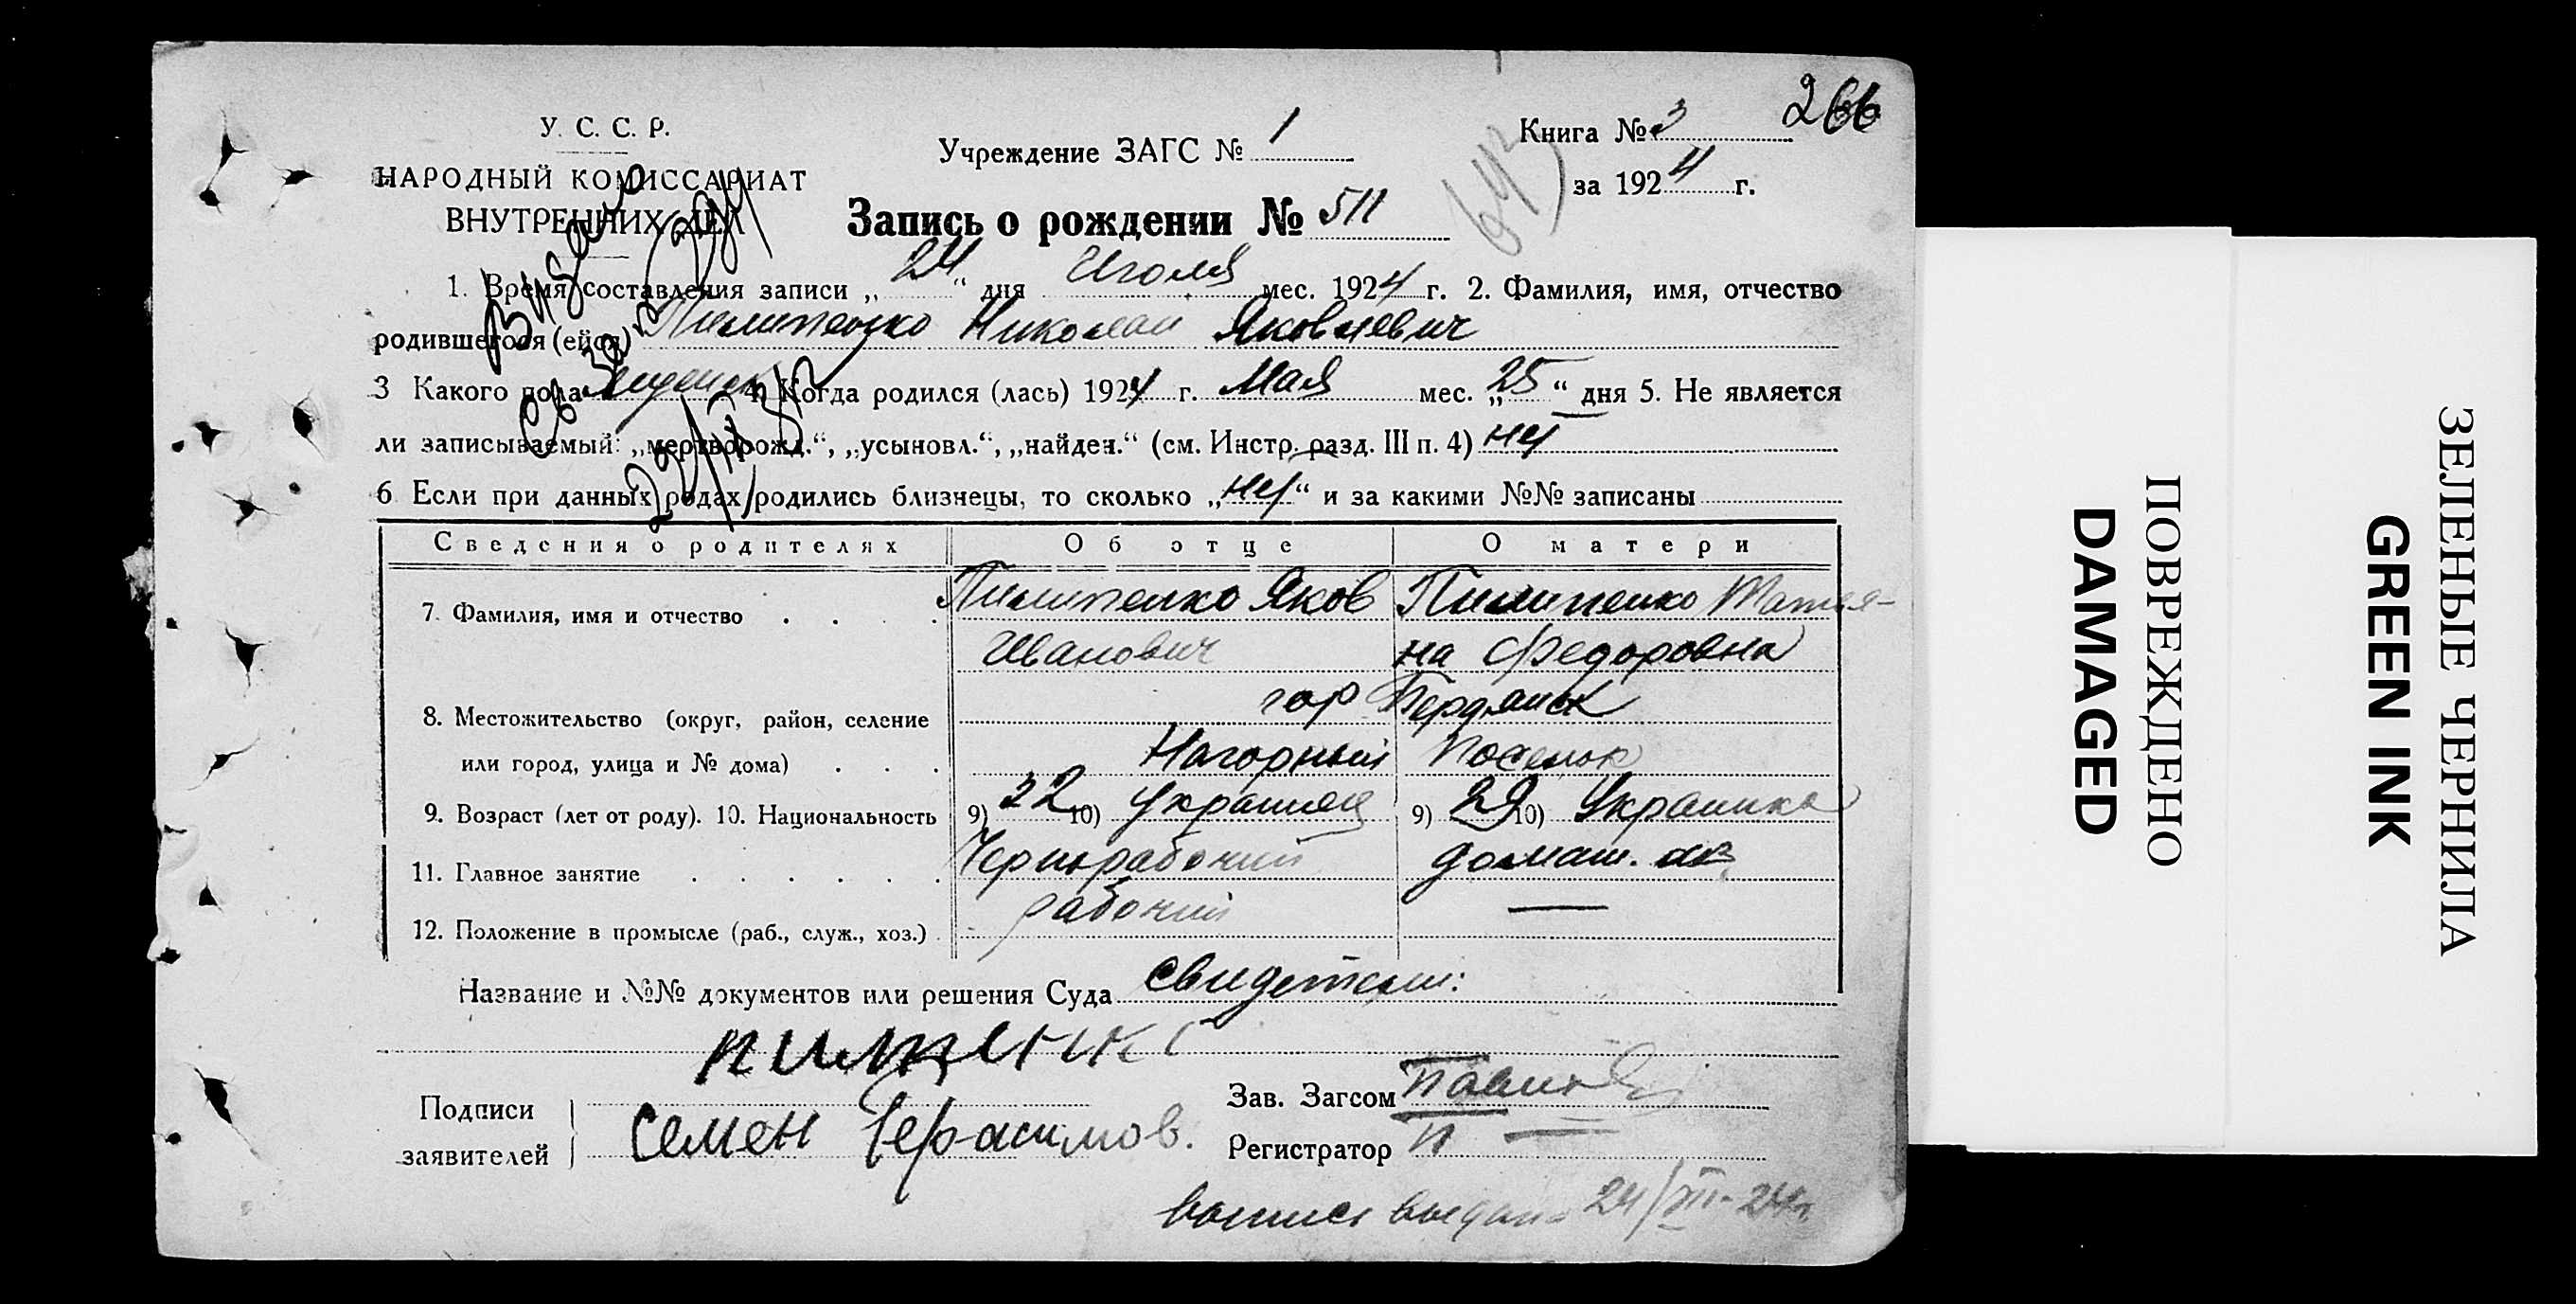 266
У. С. С. Р.
НАРОДНЫЙ КОМИССАРИАТ
ВНУТРЕННИХ ДЕЛ
Учреждение ЗАГС № 1
Книга № 3
за 1924 г.
Запись о рождении № 511
1. Время составления записи „24“ дня Июля мес. 1924 г. 2. Фамилия, имя, отчество
родившегося (ейся) Пилипенко Николай Яковлевич
3 Какого пола 4. Когда родился (лась) 1924 г. Мая мес. „25“ дня 5. Не является
ли записываемый: „мертворожд.“, „усыновл.“, „найден.“ (см. Инстр. разд. III п. 4) нет
6 Если при данных родах родились близнецы, то сколько „нет“ и за какими №№ записаны
Сведения о родителях Об отце О матери
7. Фамилия, имя и отчество . . . . Пилипенко Яков Пилипенко Татья-
Иванович на Федоровна
8. Местожительство (округ, район, селение гор Бердянск
или город, улица и № дома) . . . Нагорный Поселок
9. Возраст (лет от роду). 10. Национальность 9) 32 10) Украинец 9) 29 10) Украинка
11. Главное занятие . . . . . Чернорабочий домаш. хоз.
12. Положение в промысле (раб., служ., хоз.) . рабочий —
Название и №№ документов или решения Суда свидетели:
Подписи
заявителей
Семен Герасимов.
Зав. Загсом
Регистратор
выпись выдана 24/VII-24г.
ПОВРЕЖДЕНО
DAMAGED
ЗЕЛЕНЫЕ ЧЕРНИЛА
GREEN INK